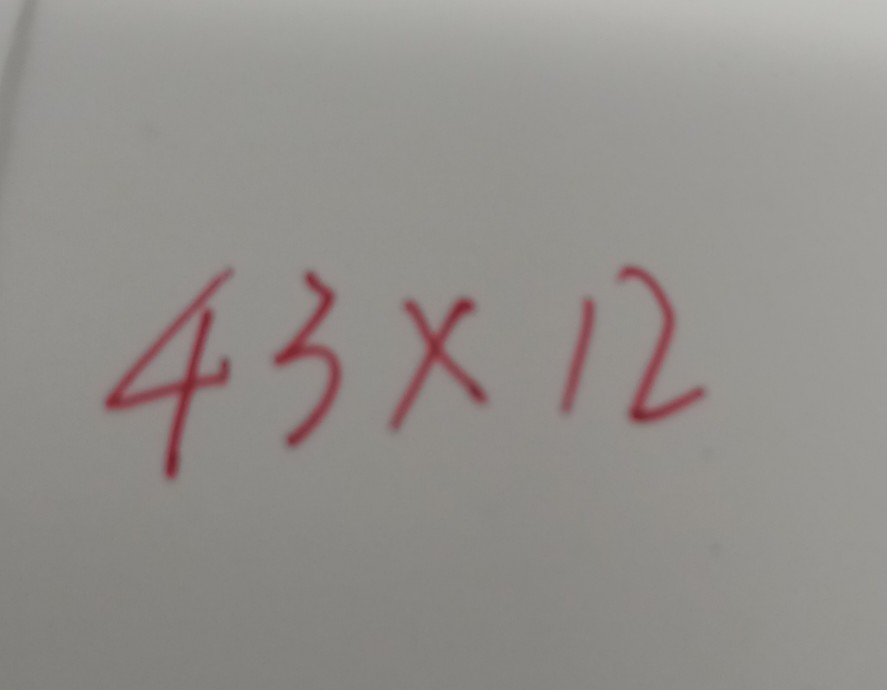 43×12